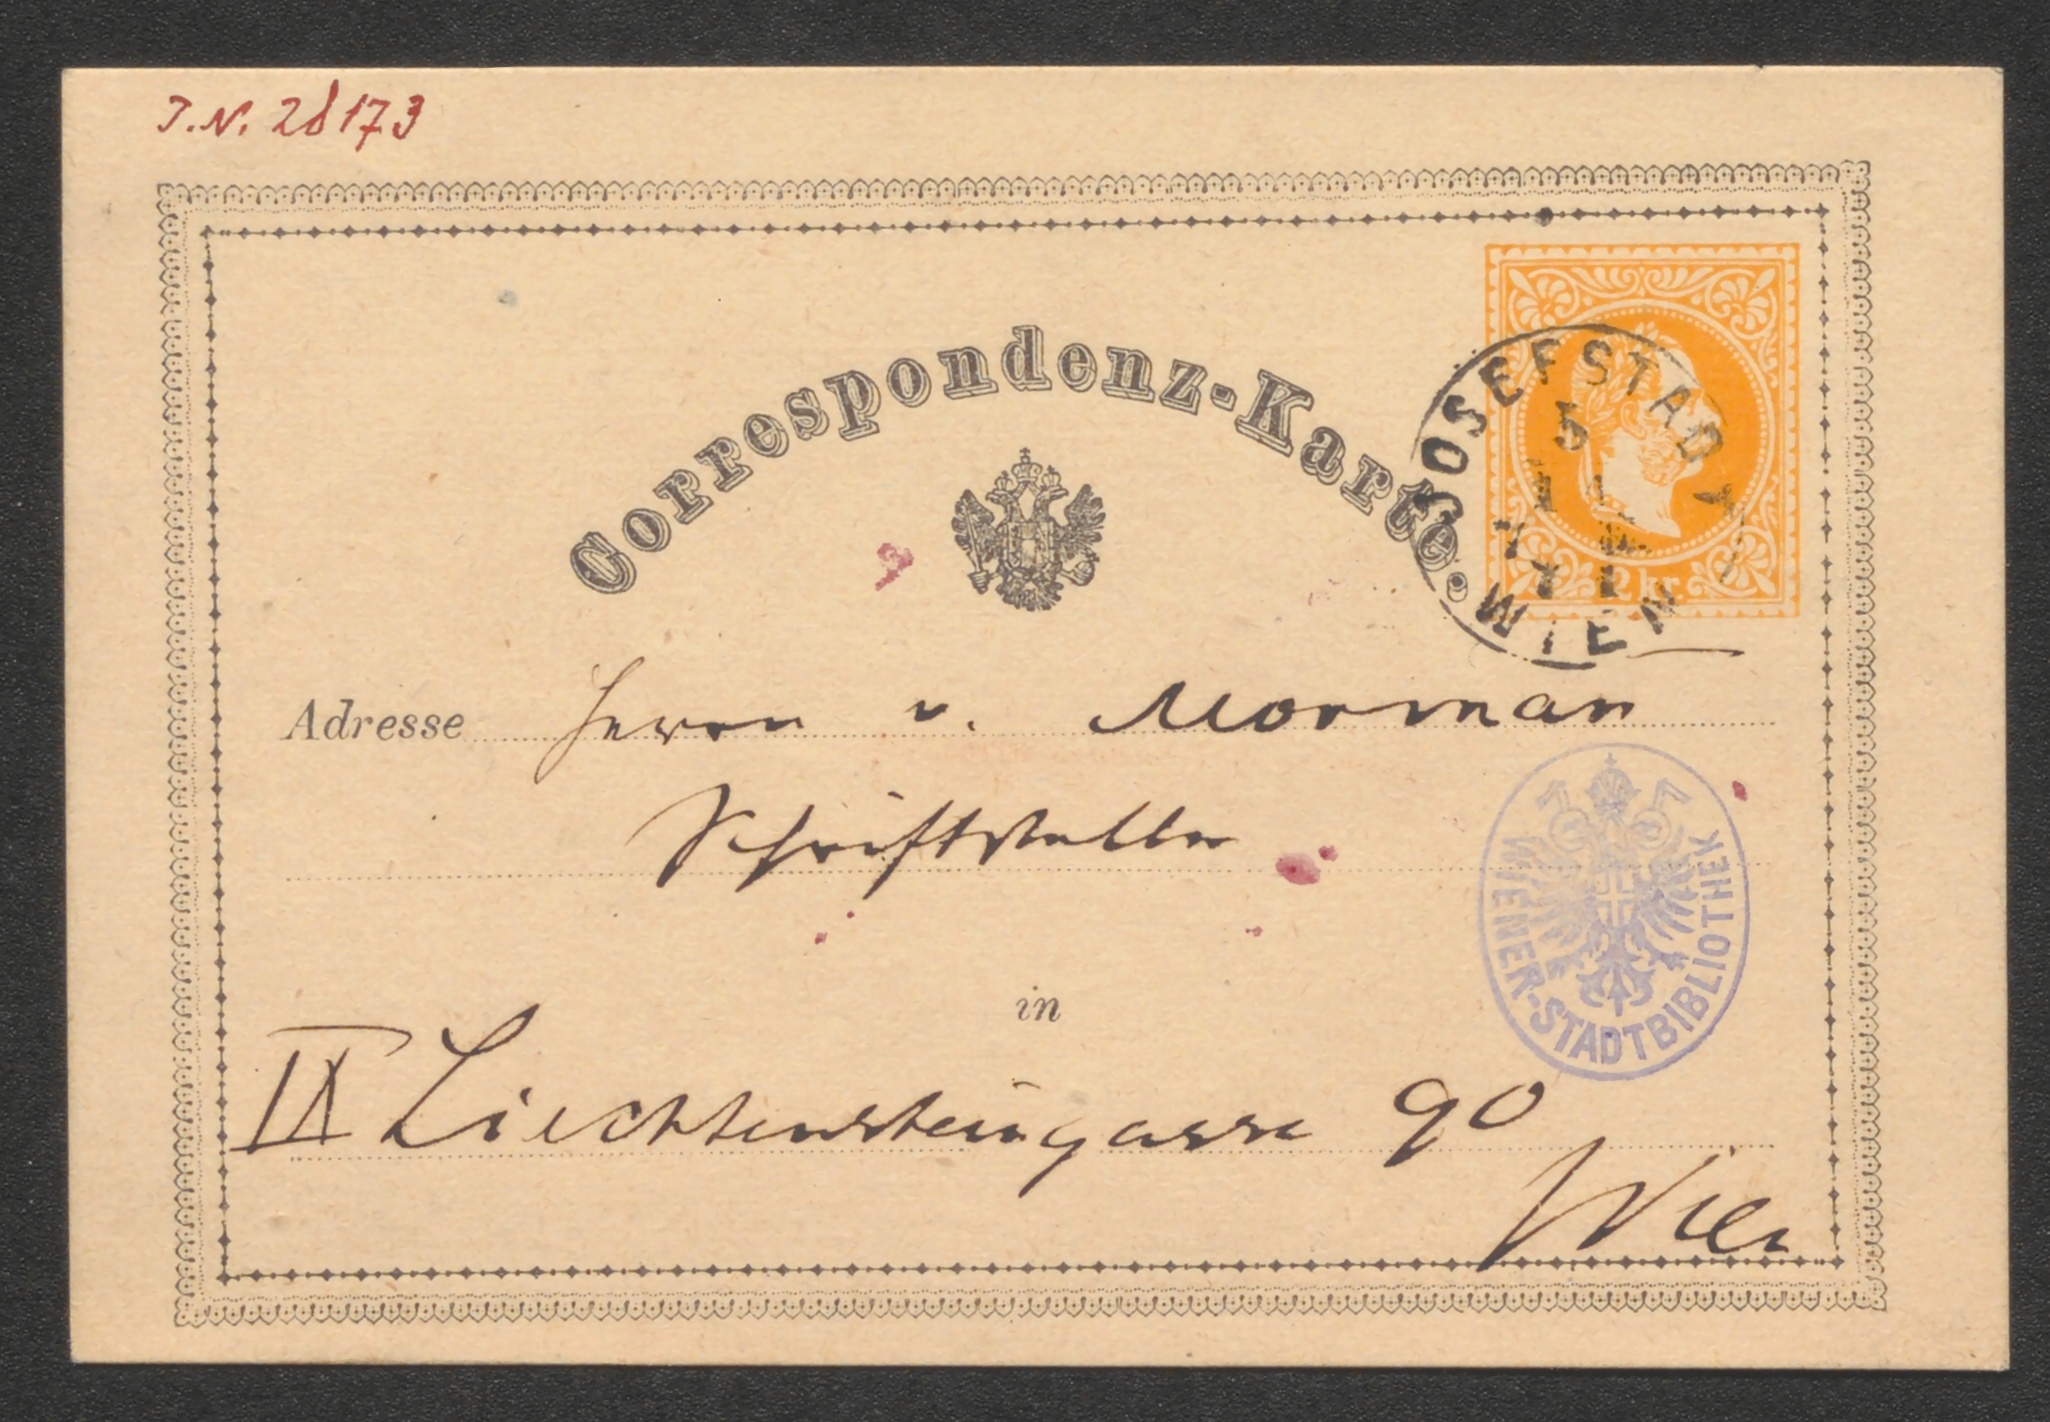 I.N. 28173
Correspondenz-Karte.
JOSEFSTADT
WIEN
2 kr.
Adresse Herrn v. Morman
Schriftsteller
WIENER-STADTBIBLIOTHEK
in
IX Liechtensteingasse 90
Wien